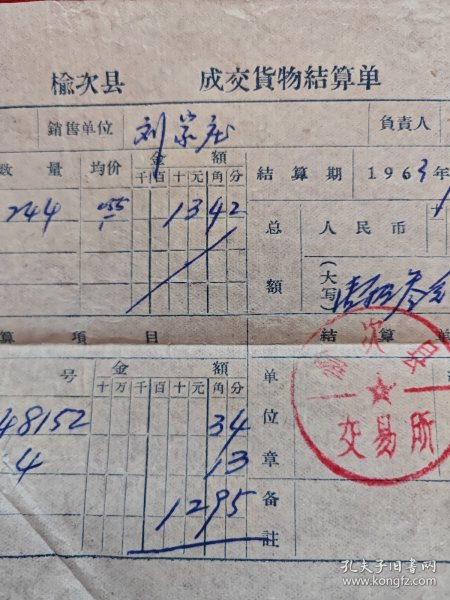 榆次县 成交貨物結算单
銷售单位 刘家庄 負責人
数量 均价 金額 結算期 1963年
千百十元角分
244 .055 1342 总額 人民币
(大写)
算項目 結算单
号 金額 单位章
十万千百十元角分
48152 34
4 13
1295 备註
次
交易所
孔夫子旧书网
www.kongfz.com